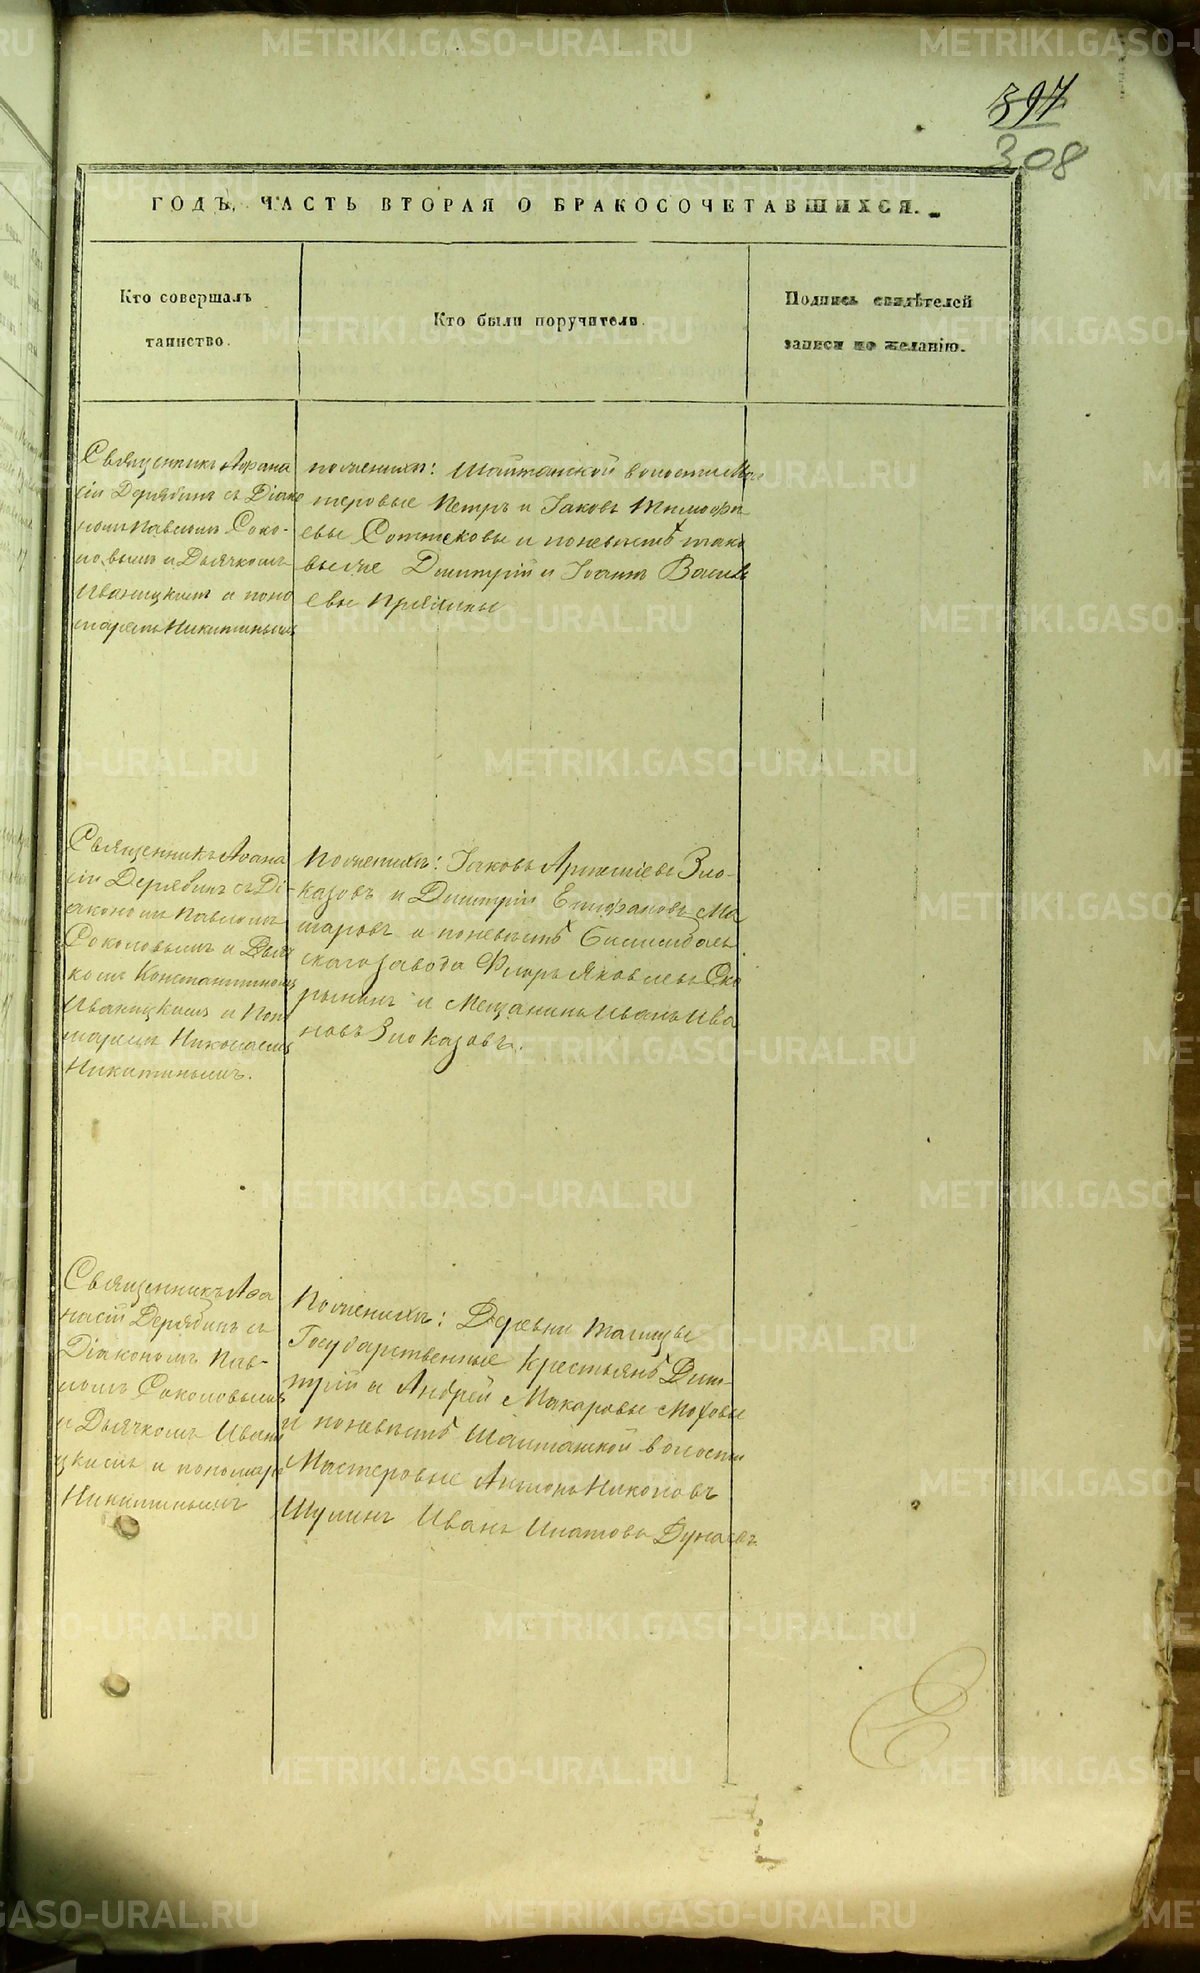 397
308
ГОДЪ. ЧАСТЬ ВТОРАЯ О БРАКОСОЧЕТАВШИХСЯ.
Кто совершалъ
таинство.
Кто были поручители.
Подпись свидѣтелей
записи по желанію.
Священникъ Афана
сій Дерябинъ съ Діако
номъ Павломъ Соко-
ловымъ и Дьячкомъ
Иваницкимъ и поно
маремъ Никитинымъ
по женихѣ: Шайтанской волости Ма
теровые Петръ и Іаковъ Тимофе
евы и по невѣстѣ тако
выеже Димитрій и Іоаннъ Василь
евы
Священникъ Афана
сій Дерябинъ съ Ді-
акономъ Павломъ
Соколовымъ и Дьяч
комъ Константиномъ
Иваницкимъ и Поно
маремъ Николаемъ
Никитинымъ.
По женихѣ: Іаковъ Зло-
казовъ и Димитрій Епифановъ Ма
таровъ и по невѣстѣ Билимбаев
скаго завода Флоръ Яковлевъ Ско
рынинъ и Мещанинъ Иванъ Ива
новъ Злоказовъ.
Священникъ Афа
насій Дерябинъ съ
Діакономъ Пав-
ломъ Соколовымъ
и Дьячкомъ Ивани
цкимъ и пономаре
Никитинымъ
По женихѣ: Деревни Талицы
Государственные Крестьянѣ Дим-
трій и Андрей Макаровы Моховы
и по невѣстѣ Шайтанской волости
Мастеровые Антонъ Никоновъ
Шулинъ Иванъ Ипатовъ Дунаевъ
METRIKI.GASO-URAL.RU